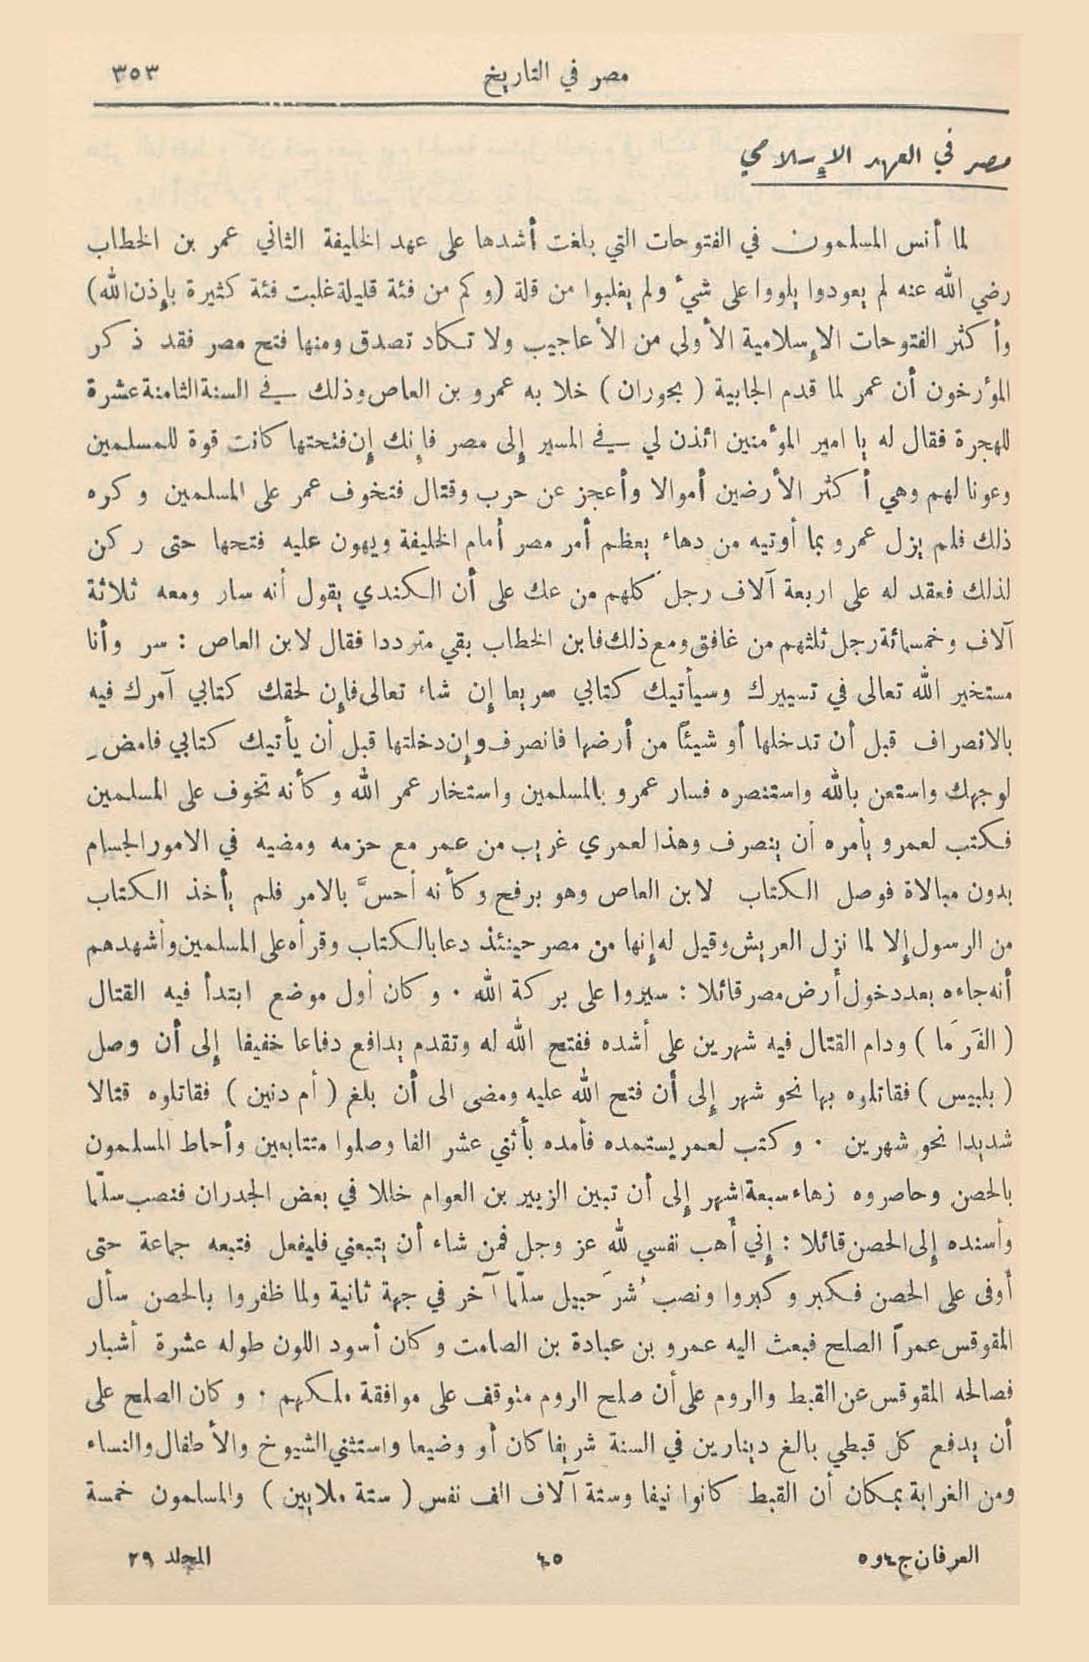 مصر في التاريخ ٣٥٣
مصر في العهد الإسلامي
لما أنس المسلمون في الفتوحات التي بلغت أشدها على عهد الخليفة الثاني عمر بن الخطاب
رضي الله عنه لم يعودوا يلووا على شيء ولم يغلبوا من قلة (وكم من فئة قليلة غلبت فئة كثيرة بإذن الله)
وأكثر الفتوحات الإسلامية الأولى من الأعاجيب ولا تكاد تصدق ومنها فتح مصر فقد ذكر
المؤرخون أن عمر لما قدم الجابية (بحوران) خلا به عمرو بن العاص وذلك في السنة الثامنة عشرة
للهجرة فقال له يا امير المؤمنين ائذن لي في المسير إلى مصر فإنك إن فتحتها كانت قوة للمسلمين
وعونا لهم وهي أكثر الأرضين أموالا وأعجز عن حرب وقتال فتخوف عمر على المسلمين وكره
ذلك فلم يزل عمرو بما أوتيه من دهاء يعظم أمر مصر أمام الخليفة ويهون عليه فتحها حتى ركن
لذلك فعقد له على اربعة آلاف رجل كلهم من عك على أن الكندي يقول أنه سار ومعه ثلاثة
آلاف وخمسمائة رجل ثلثهم من غافق ومع ذلك فابن الخطاب بقي مترددا فقال لابن العاص : سر وأنا
مستخير الله تعالى في تسييرك وسيأتيك كتابي سريعا إن شاء تعالى فإن لحقك كتابي آمرك فيه
بالانصراف قبل أن تدخلها أو شيئاً من أرضها فانصرف وإن دخلتها قبل أن يأتيك كتابي فامضِ
لوجهك واستعن بالله واستنصره فسار عمرو بالمسلمين واستخار عمر الله وكأنه تخوف على المسلمين
فكتب لعمرو يأمره أن ينصرف وهذا لعمري غريب من عمر مع حزمه ومضيه في الامور الجسام
بدون مبالاة فوصل الكتاب لابن العاص وهو برفح وكأنه أحسَّ بالامر فلم يأخذ الكتاب
من الرسول إلا لما نزل العريش وقيل له إنها من مصر حينئذ دعا بالكتاب وقرأه على المسلمين وأشهدهم
أنه جاءه بعد دخول أرض مصر قائلا : سيروا على بركة الله . وكان أول موضع ابتدأ فيه القتال
(الفَرَمَا) ودام القتال فيه شهرين على أشده ففتح الله له وتقدم يدافع دفاعا خفيفا إلى أن وصل
(بلبيس) فقاتلوه بها نحو شهر إلى أن فتح الله عليه ومضى الى أن بلغ (أم دنين) فقاتلوه قتالا
شديدا نحو شهرين . وكتب لعمر يستمده فأمده بأثني عشر الفا وصلوا متتابعين وأحاط المسلمون
بالحصن وحاصروه زهاء سبعة اشهر إلى أن تبين الزبير بن العوام خللا في بعض الجدران فنصب سلّما
وأسنده إلى الحصن قائلا : إني أهب نفسي لله عز وجل فمن شاء أن يتبعني فليفعل فتبعه جماعة حتى
أوفى على الحصن فكبر وكبروا ونصب شُرَحبيل سلّما آخر في جهة ثانية ولما ظفروا بالحصن سأل
المقوقس عمراً الصلح فبعث اليه عمرو بن عبادة بن الصامت وكان أسود اللون طوله عشرة أشبار
فصالحه المقوقس عن القبط والروم على أن صلح الروم متوقف على موافقة ملكهم . وكان الصلح على
أن يدفع كل قبطي بالغ دينارين في السنة شريفا كان أو وضيعا واستثني الشيوخ والأطفال والنساء
ومن الغرابة بمكان أن القبط كانوا نيفا وستة آلاف الف نفس (ستة ملايين) والمسلمون خمسة
العرفان ج٤و٥ ٤٥ المجلد ٢٩